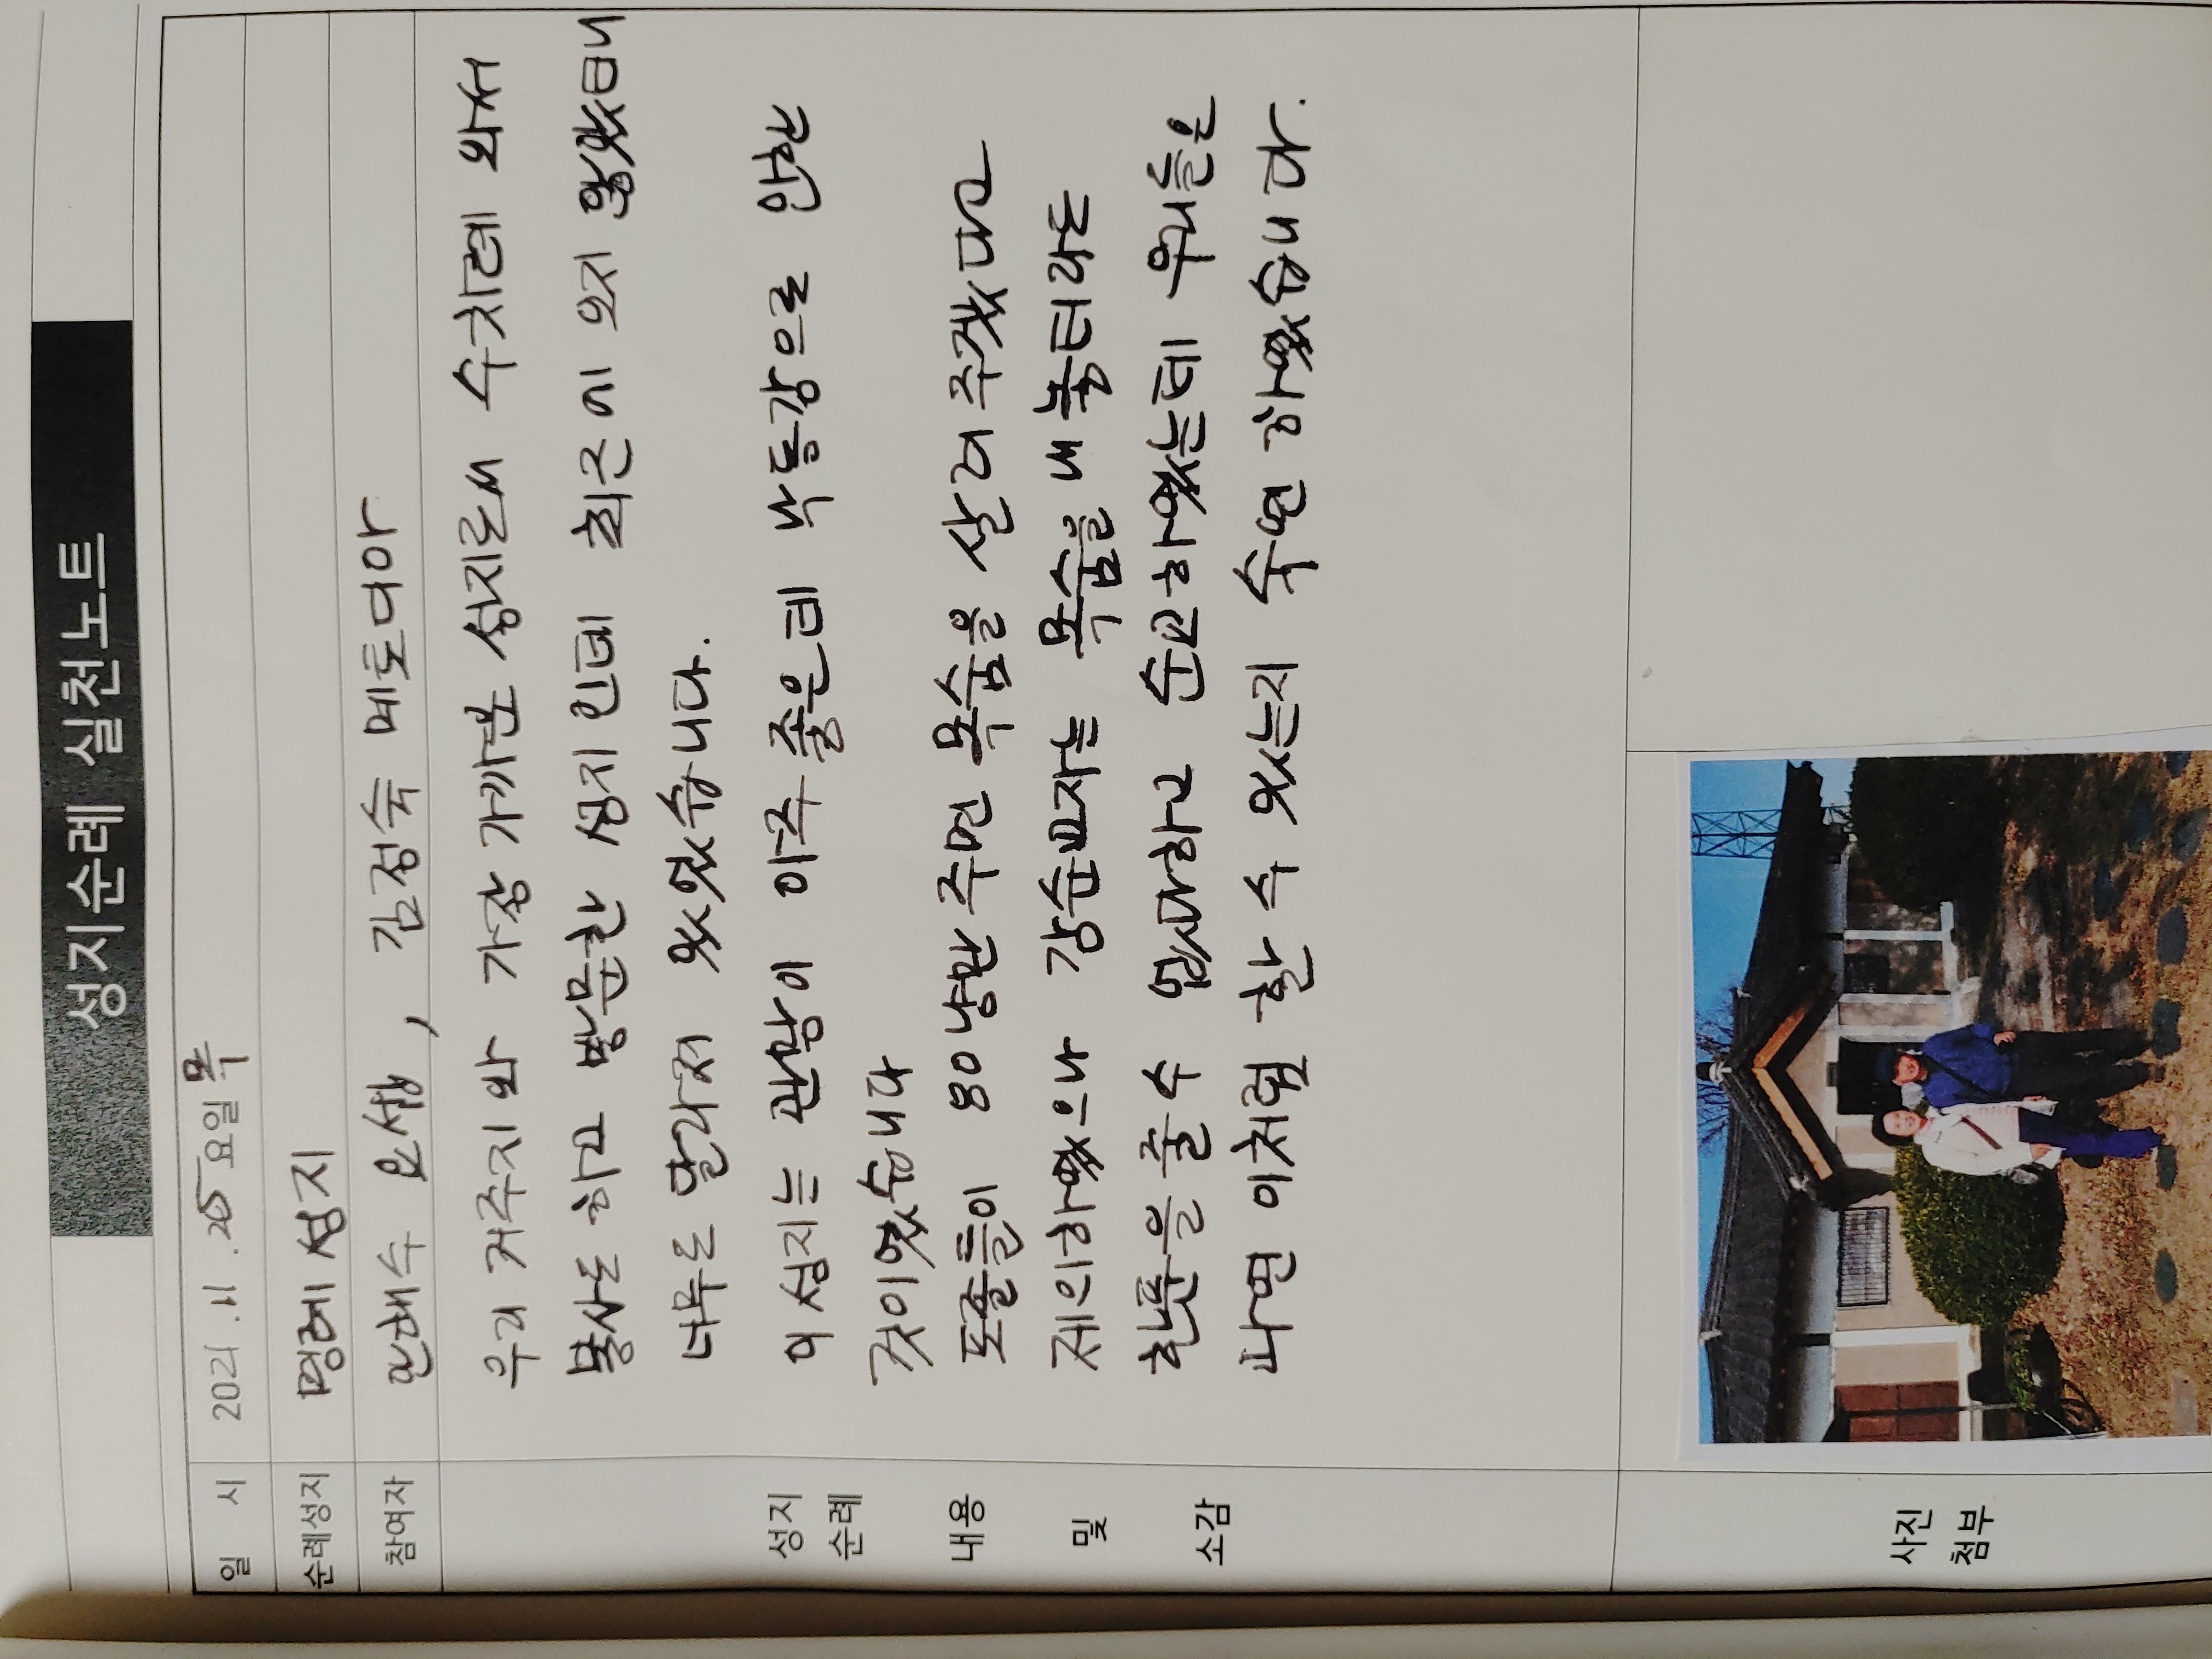 성지순례 실천노트
일 시 2021 .11 .25 요일 목
순례성지 명례 성지
참여자 안해수 요셉, 김정숙 메토디아
우리 거주지와 가장 가까운 성지로써 수차례 와서
봉사도 하고 방문한 성지인데 최근에 오지 않았더니
너무도 달라저 있었습니다.
성지 이 성지는 관망이 아주 좋은데 낙동강으로 인한
순례 것이였습니다
내용 포졸들이 80냥만 주면 목숨을 살려 주겠다고
및 제의하였으나 감순교자는 목숨을 내 놓터라도
소감 한푼을 줄 수 없다하고 순교하였는데 우리들은
과연 이처럼 할 수 있는지 숙연 하였습니다.
사진
첨부